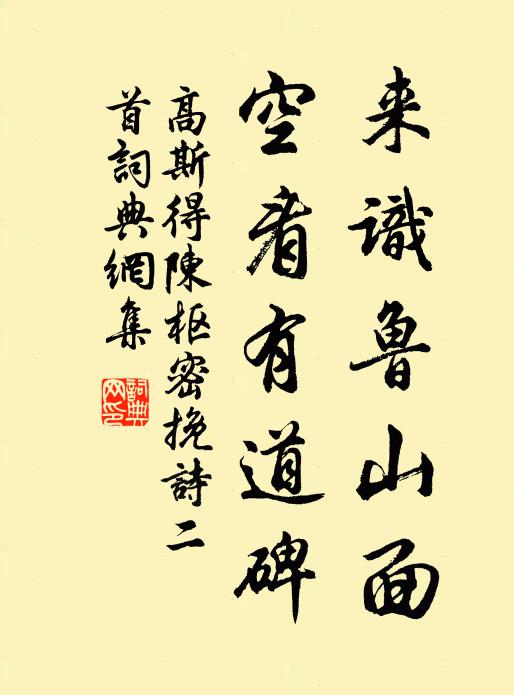 来識鲁山面
空看有道碑
高斯得陳枢密挽詩二
首詞典網集
詞典网印